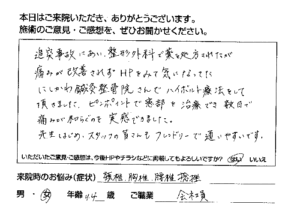 本日はご来院いただき、ありがとうございます。
施術のご意見・ご感想を、ぜひお聞かせください。
追突事故にあい、整形外科で薬を処方されたが
痛みが改善されずHPをみて気になってた
にしかわ鍼灸整骨院さんでハイボルト療法をして
頂きました。ピンポイントで患部を治療でき数日で
痛みが和らぐのを実感できました。
先生はじめ、スタッフの皆さんもフレンドリーで通いやすいです。
いただいたご意見・ご感想は、今後HPやチラシなどに掲載してもよろしいですか? はい いいえ
来院時のお悩み(症状) 頚椎 胸椎 腰椎 捻挫
男・女 年齢 44 歳 ご職業 会社員